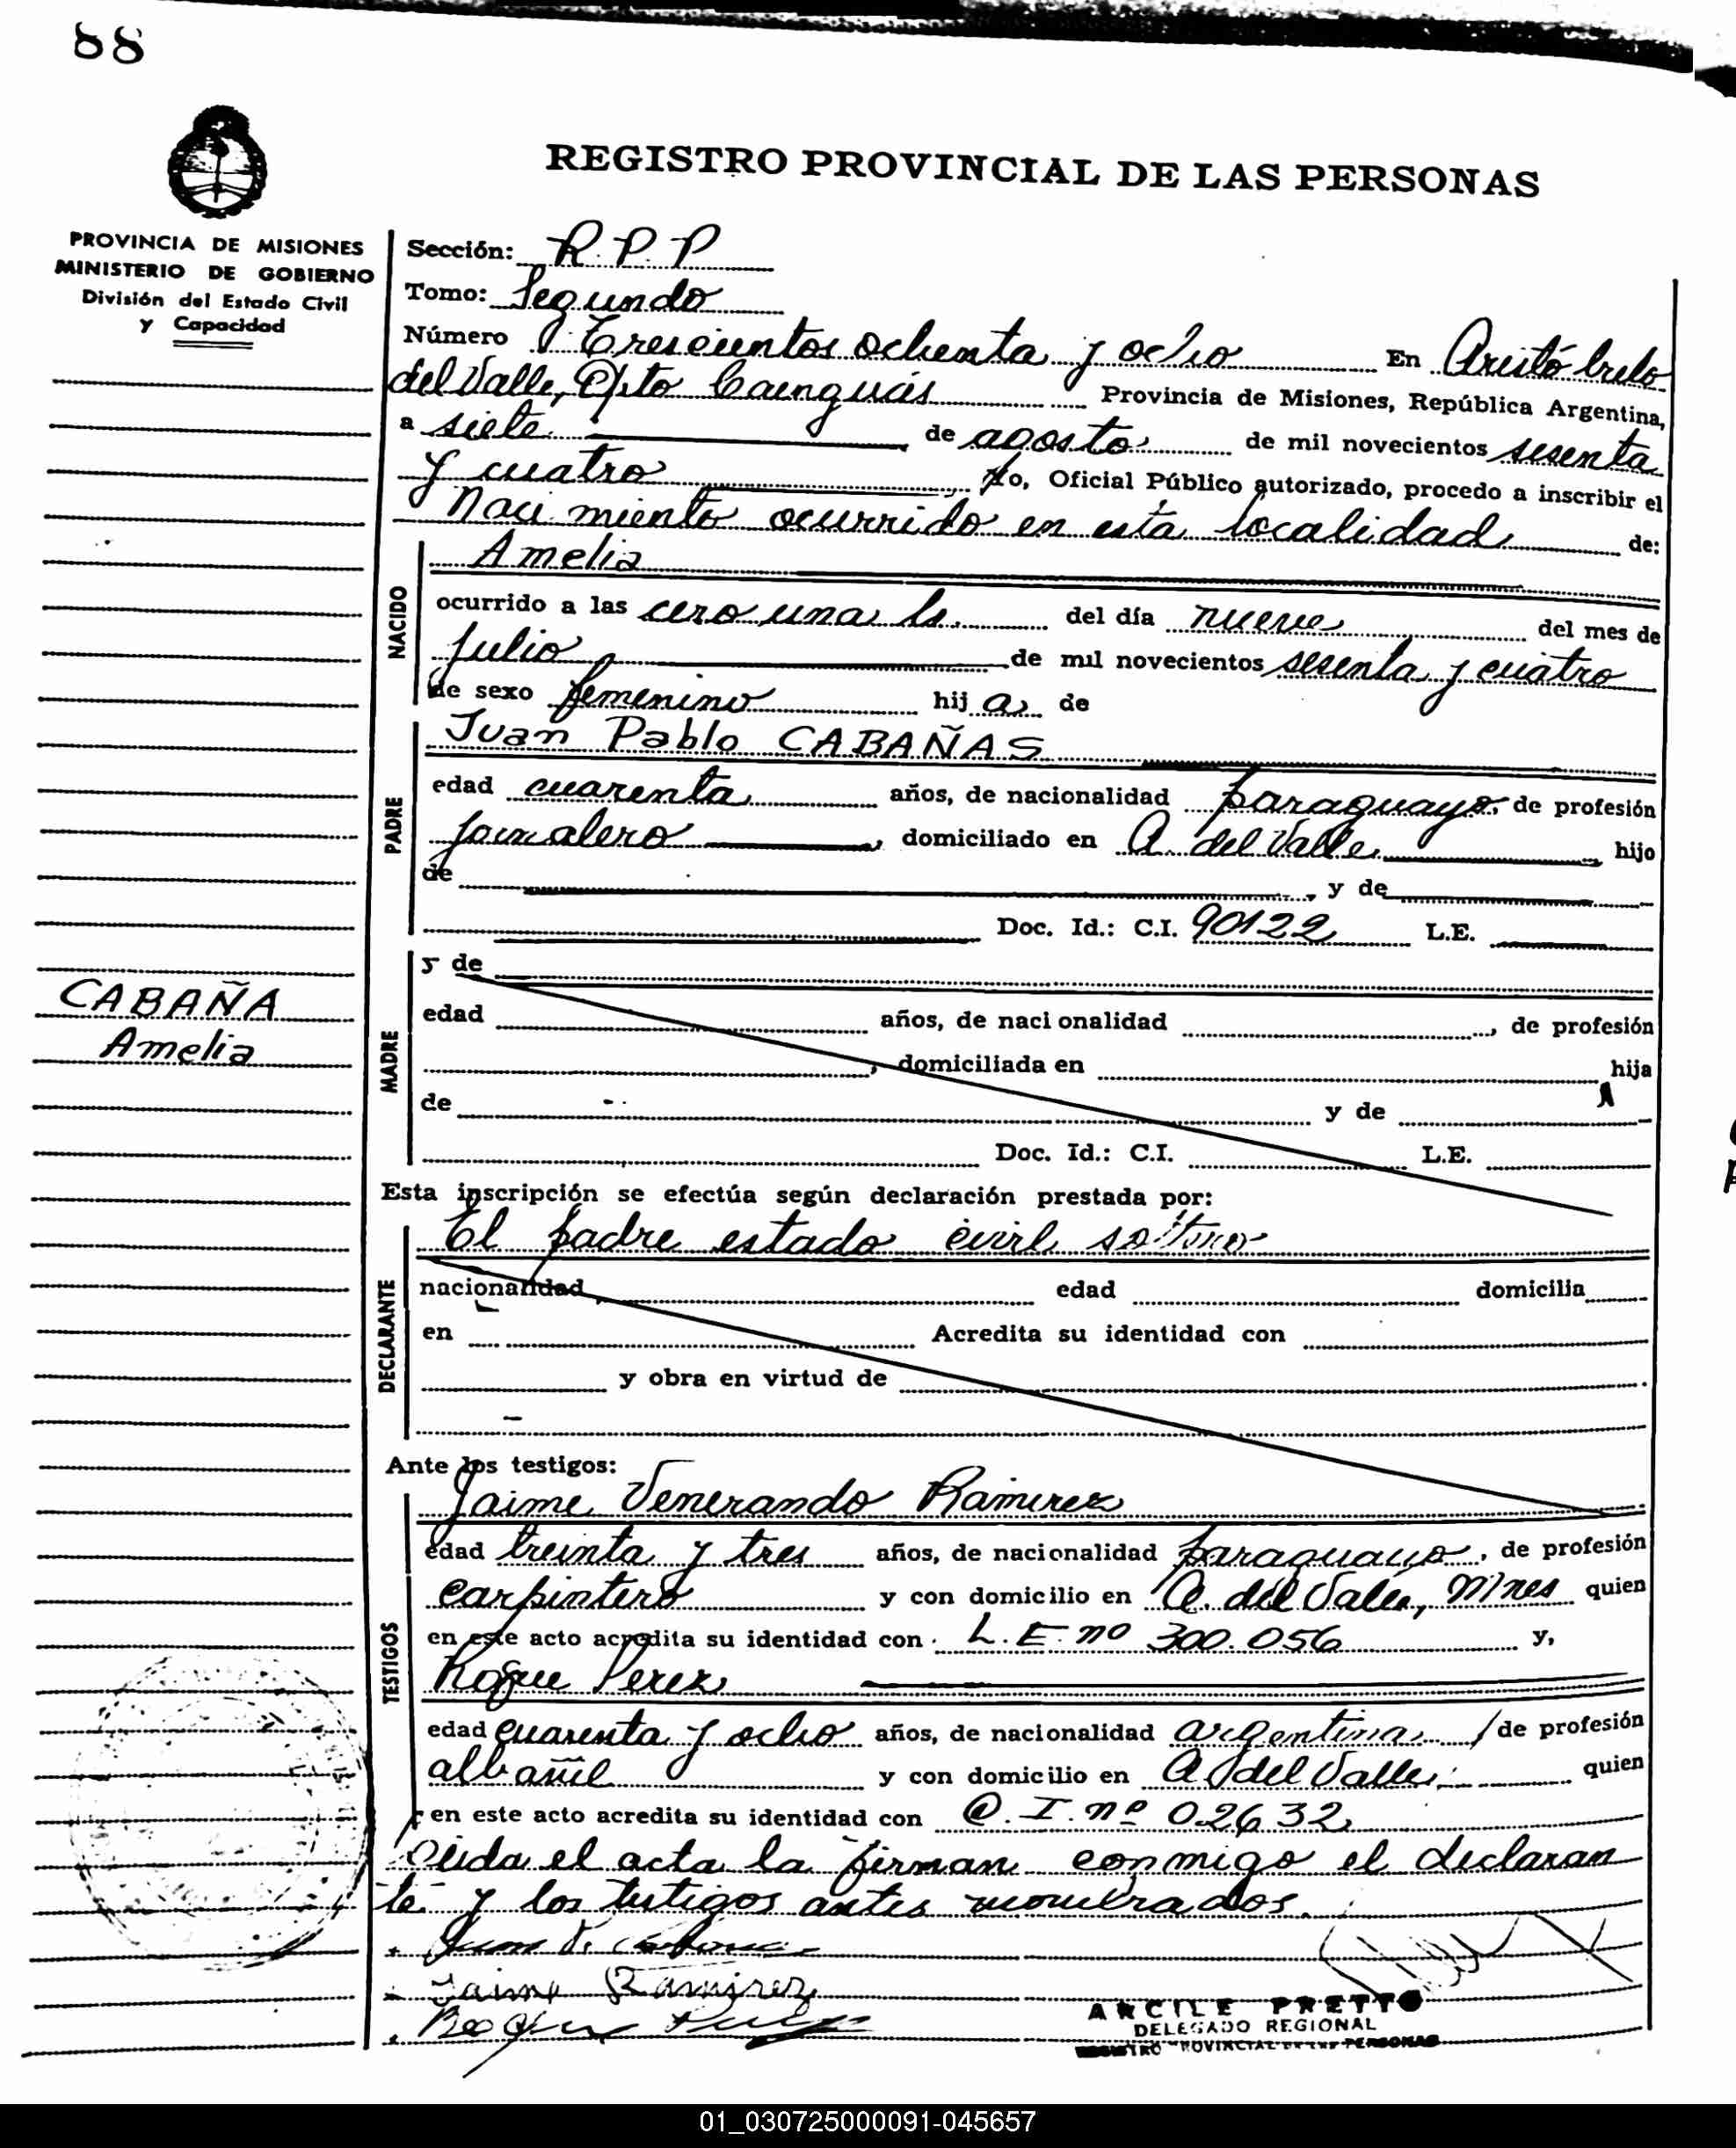 88
REGISTRO PROVINCIAL DE LAS PERSONAS
PROVINCIA DE MISIONES
MINISTERIO DE GOBIERNO
División del Estado Civil
y Capacidad
Sección: R.P.P
Tomo: Segundo
Número Trescientos ochenta y ocho En Aristóbulo
del Valle, Dpto Cainguás Provincia de Misiones, República Argentina,
a siete de agosto de mil novecientos sesenta
y cuatro, Yo, Oficial Público autorizado, procedo a inscribir el
Nacimiento ocurrido en esta localidad de:
NACIDO
Amelia
ocurrido a las cero una hs. del día nueve del mes de
julio de mil novecientos sesenta y cuatro
de sexo femenino hija de
PADRE
Juan Pablo CABAÑAS
edad cuarenta años, de nacionalidad paraguayo, de profesión
jornalero, domiciliado en A. del Valle, hijo
de , y de
Doc. Id.: C.I. 90122 L.E.
MADRE
y de
edad años, de nacionalidad , de profesión
, domiciliada en hija
de y de
Doc. Id.: C.I. L.E.
CABAÑA
Amelia
Esta inscripción se efectúa según declaración prestada por:
DECLARANTE
El padre estado civil soltero
nacionalidad edad domicilia
en Acredita su identidad con
y obra en virtud de
Ante los testigos:
TESTIGOS
Jaime Venerando Ramirez
edad treinta y tres años, de nacionalidad paraguayo, de profesión
carpintero y con domicilio en A. del Valle, Mnes quien
en este acto acredita su identidad con L.E. nº 300.056 y,
Roque Perez
edad cuarenta y ocho años, de nacionalidad argentina, de profesión
albañil y con domicilio en A. del Valle, quien
en este acto acredita su identidad con C.I. nº 02632
Leida el acta la firman conmigo el declaran
te y los testigos antes nombrados.
Juan P. Cabañas
Jaime Ramirez
Roque Perez
ARCILE PRETTO
DELEGADO REGIONAL
REGISTRO PROVINCIAL DE LAS PERSONAS
01_030725000091-045657